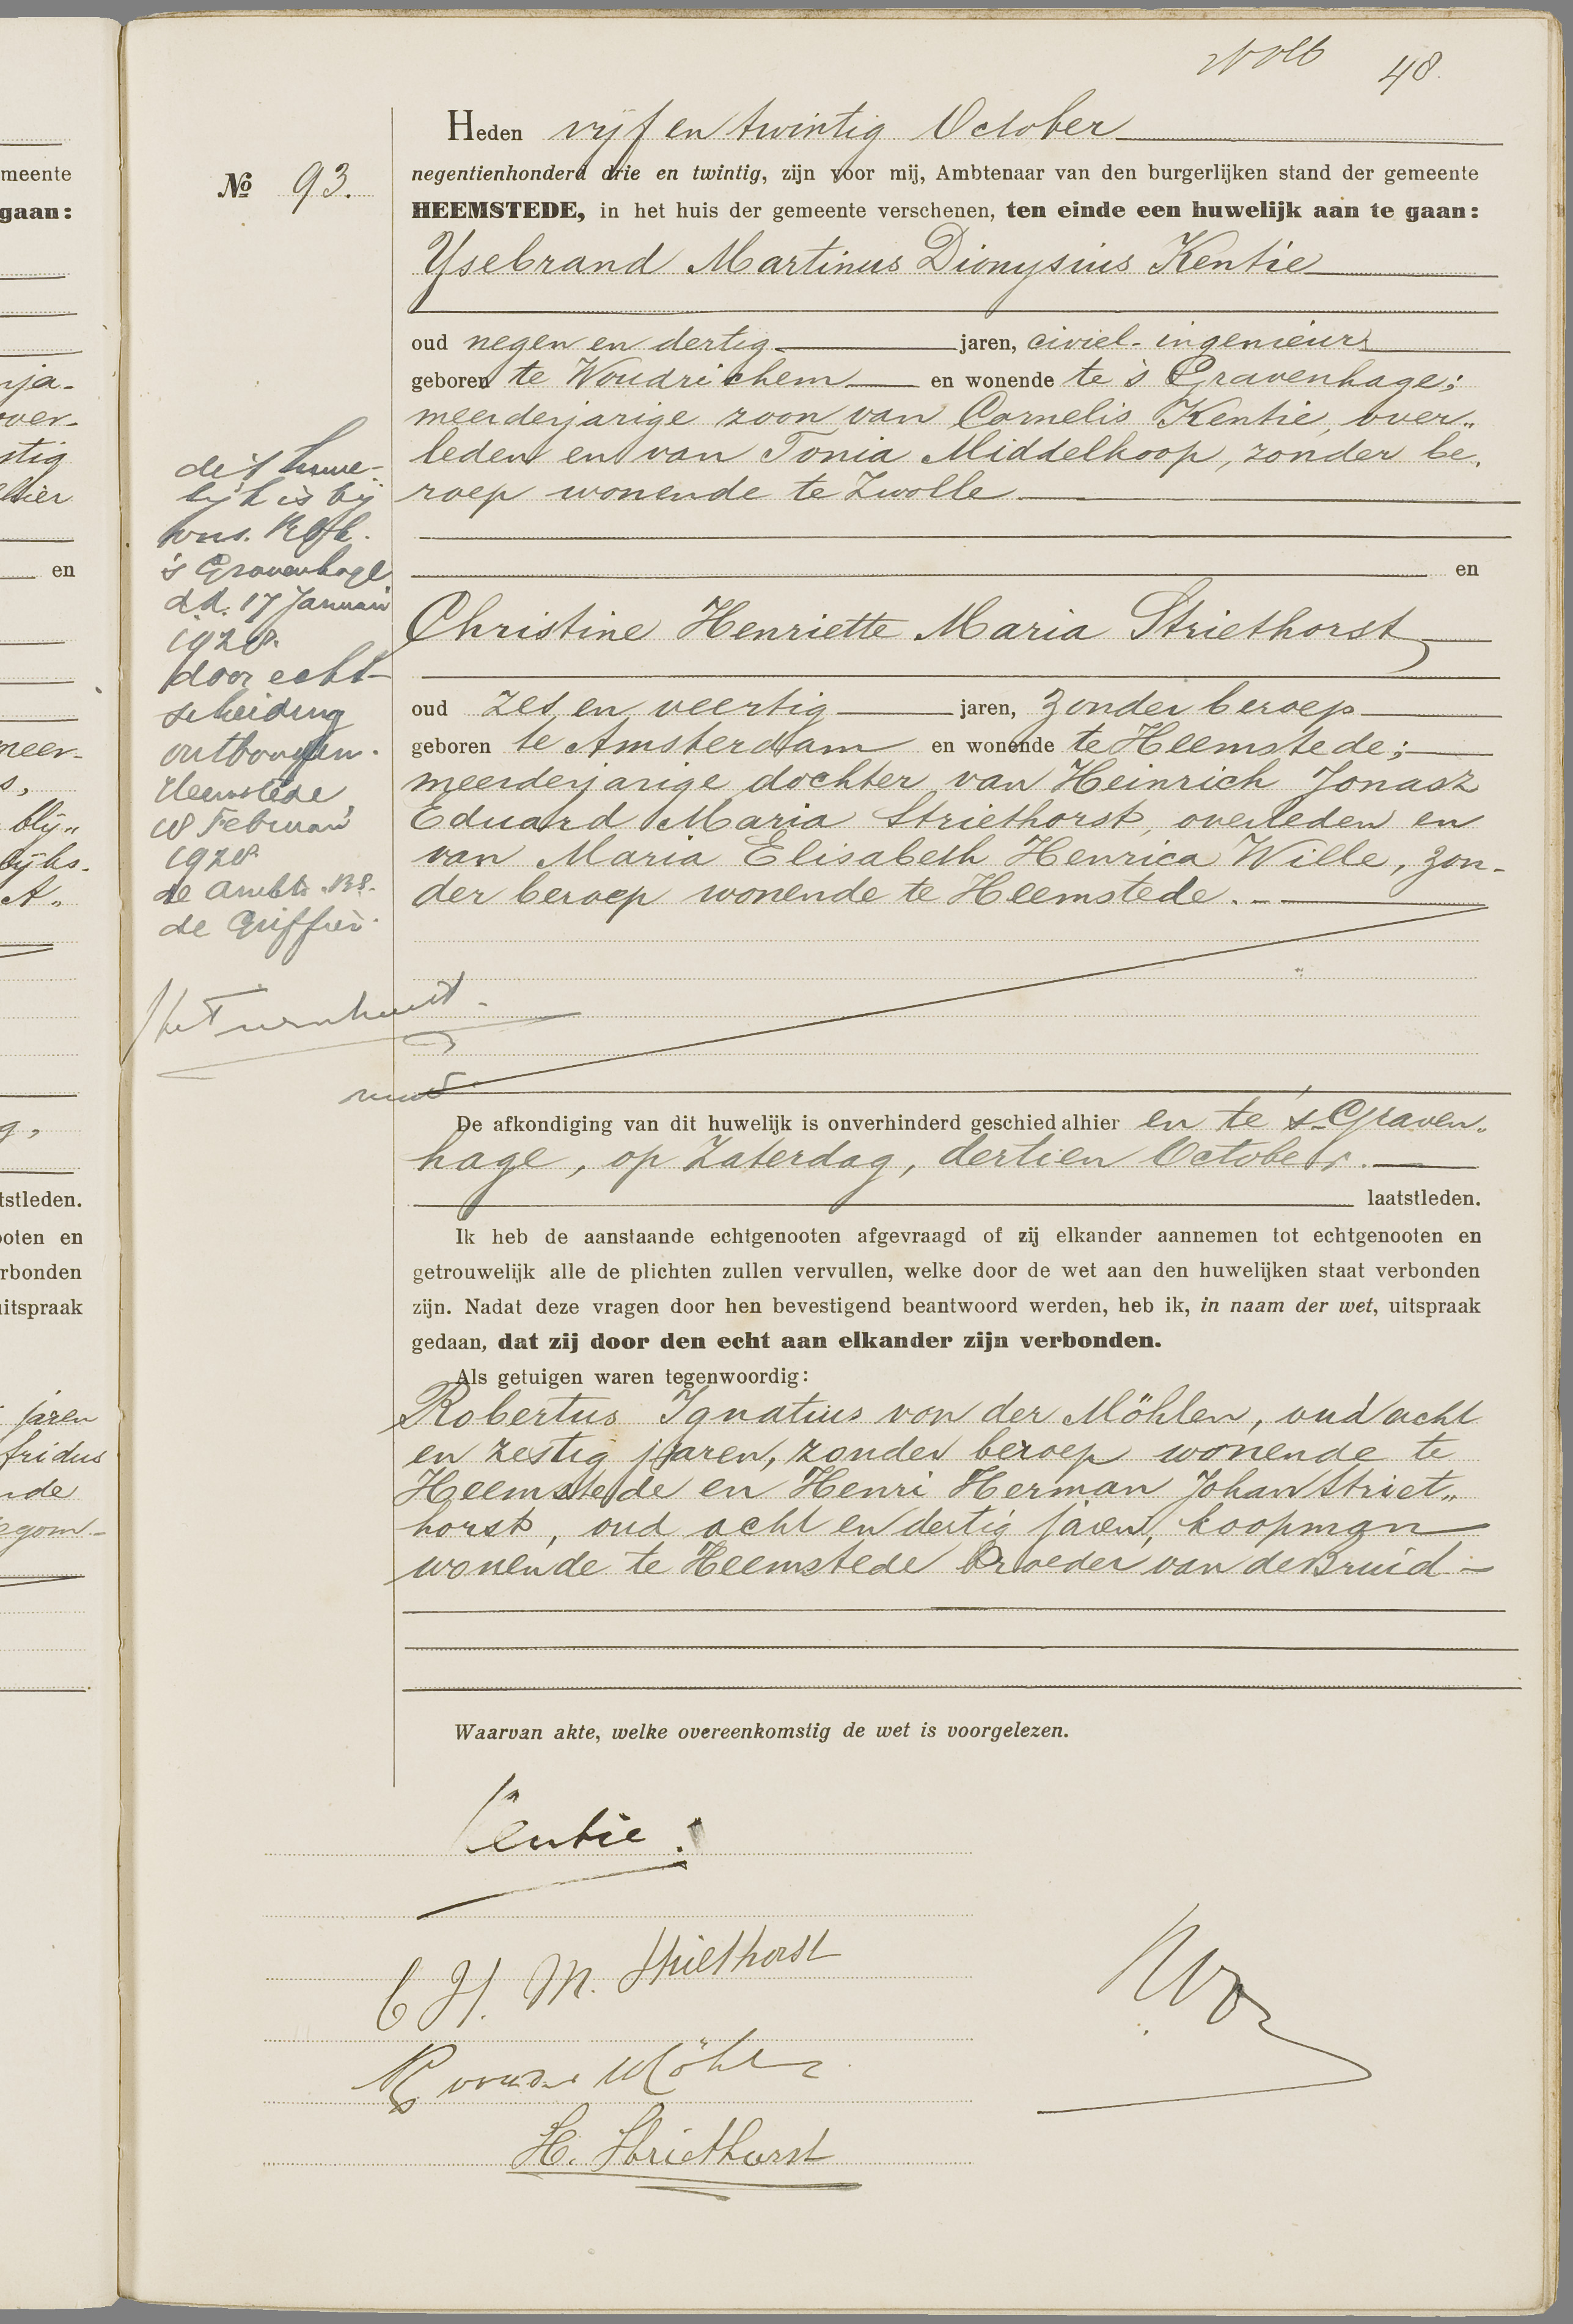 48.
Heden vijf en twintig October
No 93.
negentienhonderd drie en twintig, zijn voor mij, Ambtenaar van den burgerlijken stand der gemeente
HEEMSTEDE, in het huis der gemeente verschenen, ten einde een huwelijk aan te gaan:
Ysebrand Martinus Dionysius Kentie
oud negen en dertig jaren, civiel-ingenieur,
geboren te Woudrichem en wonende te 's Gravenhage;
meerderjarige zoon van Cornelis Kentie, over„
leden en van Tonia Middelkoop, zonder be„
roep wonende te Zwolle
en
Christine Henriette Maria Striethorst
oud zes en veertig jaren, zonder beroep
geboren te Amsterdam en wonende te Heemstede;
meerderjarige dochter van Heinrich Jonasz
Eduard Maria Striethorst, overleden en
van Maria Elisabeth Henrica Wille, zon-
der beroep wonende te Heemstede.
dit huwe-
lijk is bij
vons. Rbk.
's Gravenhage
d.d. 17 Januari
1928
door echt-
scheiding
ontbonden.
Heemstede,
18 Februari
1928
de Ambt. BS.
de Griffier
De afkondiging van dit huwelijk is onverhinderd geschied alhier en te 's-Graven„
hage, op Zaterdag, dertien October.
laatstleden.
Ik heb de aanstaande echtgenooten afgevraagd of zij elkander aannemen tot echtgenooten en
getrouwelijk alle de plichten zullen vervullen, welke door de wet aan den huwelijken staat verbonden
zijn. Nadat deze vragen door hen bevestigend beantwoord werden, heb ik, in naam der wet, uitspraak
gedaan, dat zij door den echt aan elkander zijn verbonden.
Als getuigen waren tegenwoordig:
Robertus Ignatius von der Möhlen, oud acht
en zestig jaren, zonder beroep wonende te
Heemstede en Henri Herman Johan Striet„
horst, oud acht en dertig jaren, koopman
wonende te Heemstede broeder van de Bruid
Waarvan akte, welke overeenkomstig de wet is voorgelezen.
Kentie.
C H. M. Striethorst
R von der Möhlen
H. Striethorst
meente
gaan:
rja-
over-
stig
en
meer-
s,
blij„
tstleden.
ooten en
rbonden
uitspraak
jaren
fridus
nde
egom-